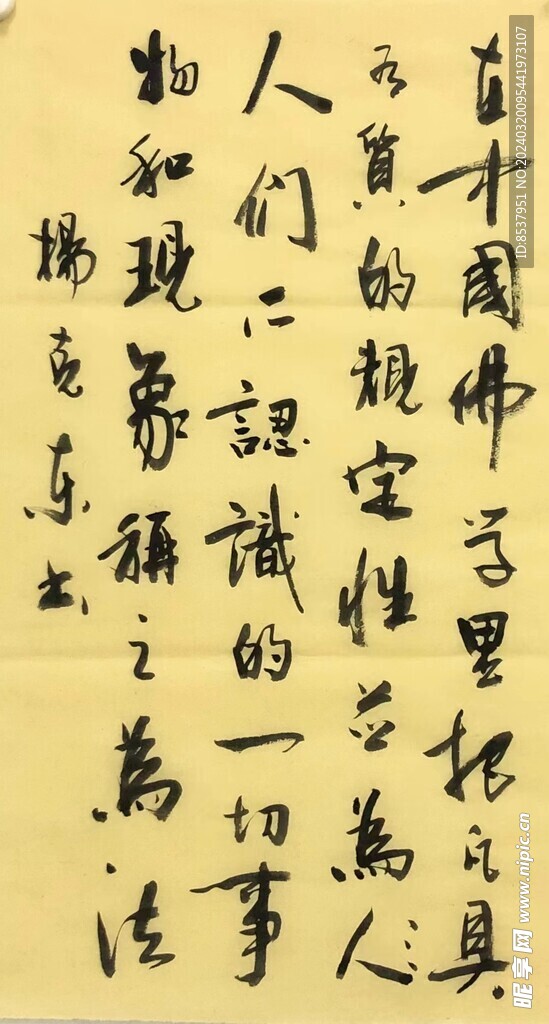 在中國佛学里把凡具
有質的規定性並为人
人们仁認識的一切事
物和現象稱之為法
楊克東书
ID:8537951 NO:20240320095441973107
昵享网 www.nipic.cn